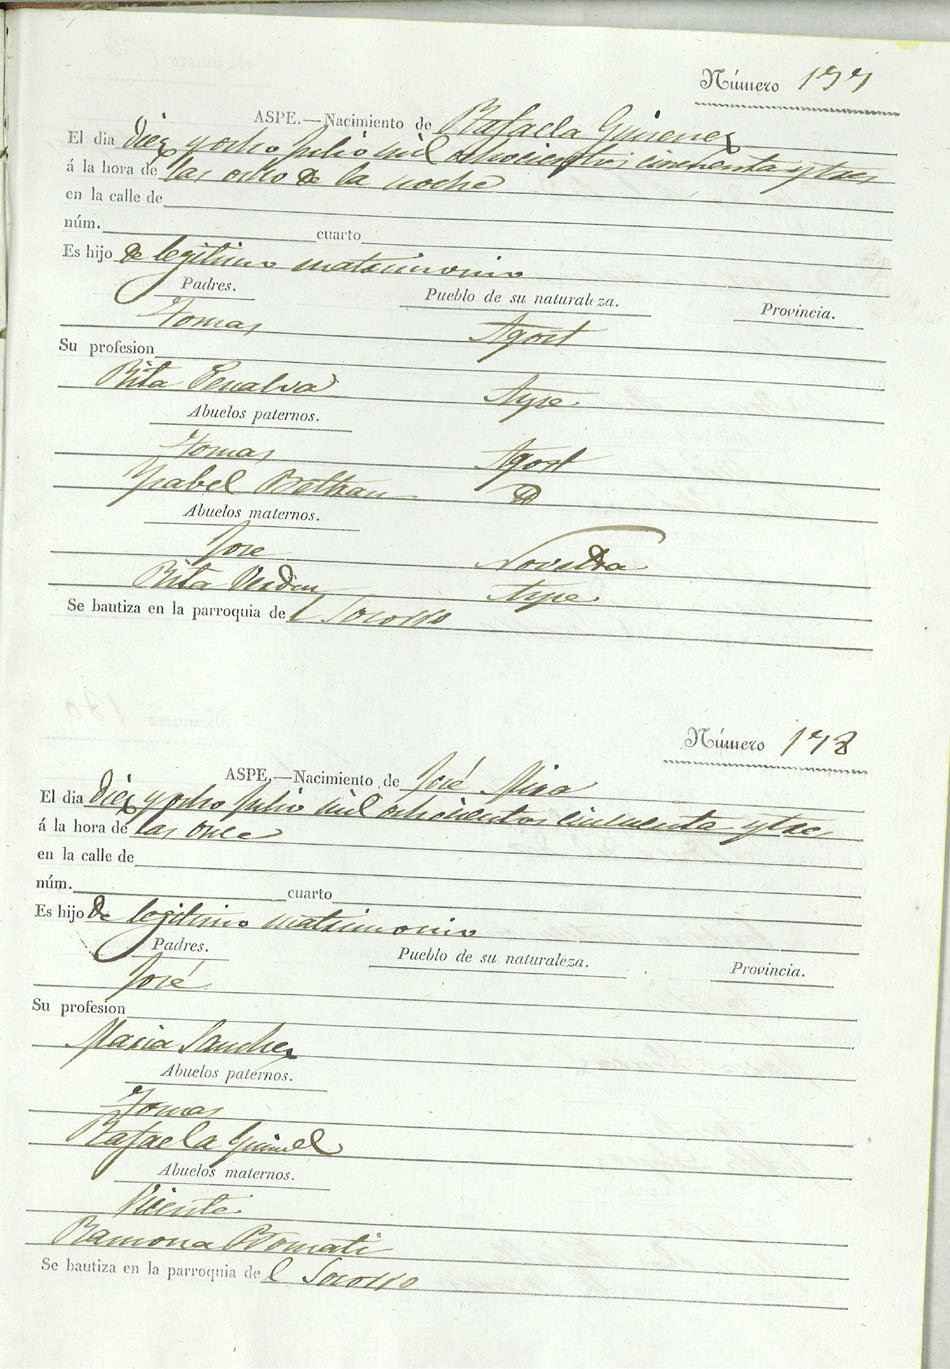 Número 177
ASPE.—Nacimiento de Rafaela Gimenez
El dia diez y ocho Julio mil ochocientos cincuenta y tres
á la hora de las ocho de la noche
en la calle de
núm. cuarto
Es hijo de legitimo matrimonio
Padres. Pueblo de su naturaleza. Provincia.
Tomas Agost
Su profesion
Rita Penalva Aspe
Abuelos paternos.
Tomas Agost
Ysabel Beltran D
Abuelos maternos.
Jose Novelda
Rita Verdu Aspe
Se bautiza en la parroquia de l Socorro
Número 178
ASPE.—Nacimiento de José Mira
El dia Diez y ocho Julio mil ochocientos cincuenta y tres
á la hora de las once
en la calle de
núm. cuarto
Es hijo de legitimo matrimonio
Padres. Pueblo de su naturaleza. Provincia.
José
Su profesion
Maria Sanchez
Abuelos paternos.
Tomas
Rafaela
Abuelos maternos.
Vicente
Ramona
Se bautiza en la parroquia de l Socorro